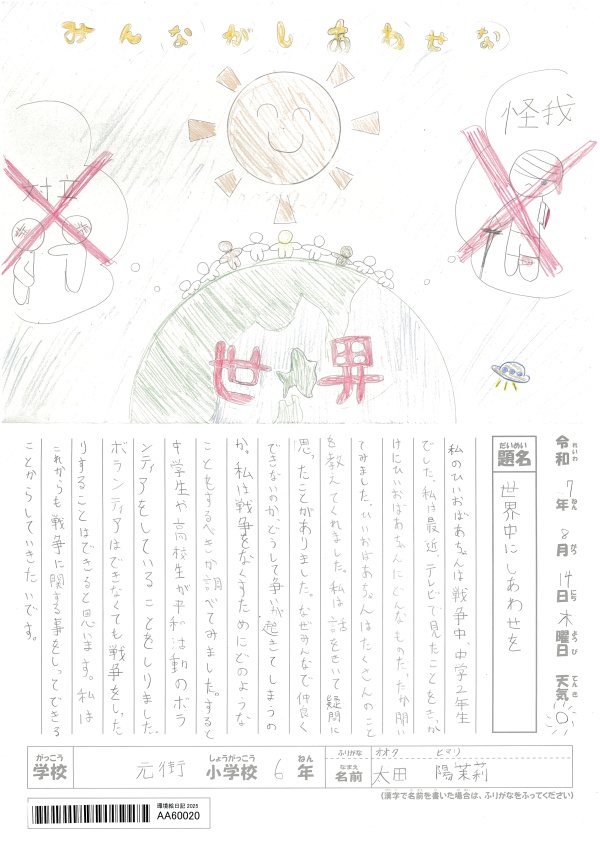 みんながしあわせな
対立
怪我
世界
令和7年8月14日木曜日 天気
れいわ ねん がつ にち ようび てんき
だいめい
題名
世界中にしあわせを
私のひいおばあちゃんは戦争中、中学2年生
でした。私は最近、テレビで見たことをきっか
けにひいおばあちゃんにどんなものだったか聞い
てみました。ひいおばあちゃんはたくさんのこと
を教えてくれました。私は話をきいて疑問に
思ったことがありました。なぜみんなで仲良く
できないのかどうして争いが起きてしまうの
か。私は戦争をなくすためにどのような
ことをするべきか調べてみました。すると
中学生や高校生が平和活動のボラ
ンティアをしていることをしりました。
ボランティアはできなくても戦争をしった
りすることはできると思います。私は
これからも戦争に関する事をしってできる
ことからしていきたいです。
がっこう しょうがっこう ねん
学校 元街 小学校 6年
ふりがな オオタ ヒマリ
なまえ
名前 太田 陽茉莉
(漢字で名前を書いた場合は、ふりがなをふってください)
環境絵日記 2025
AA60020